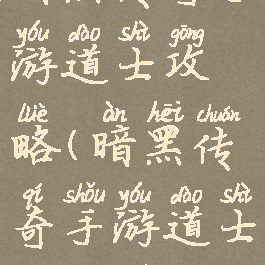 yóu dào shì gōng
游道士攻
lüè àn hēi chuán
略(暗黑传
qí shǒu yóu dào shì
奇手游道士